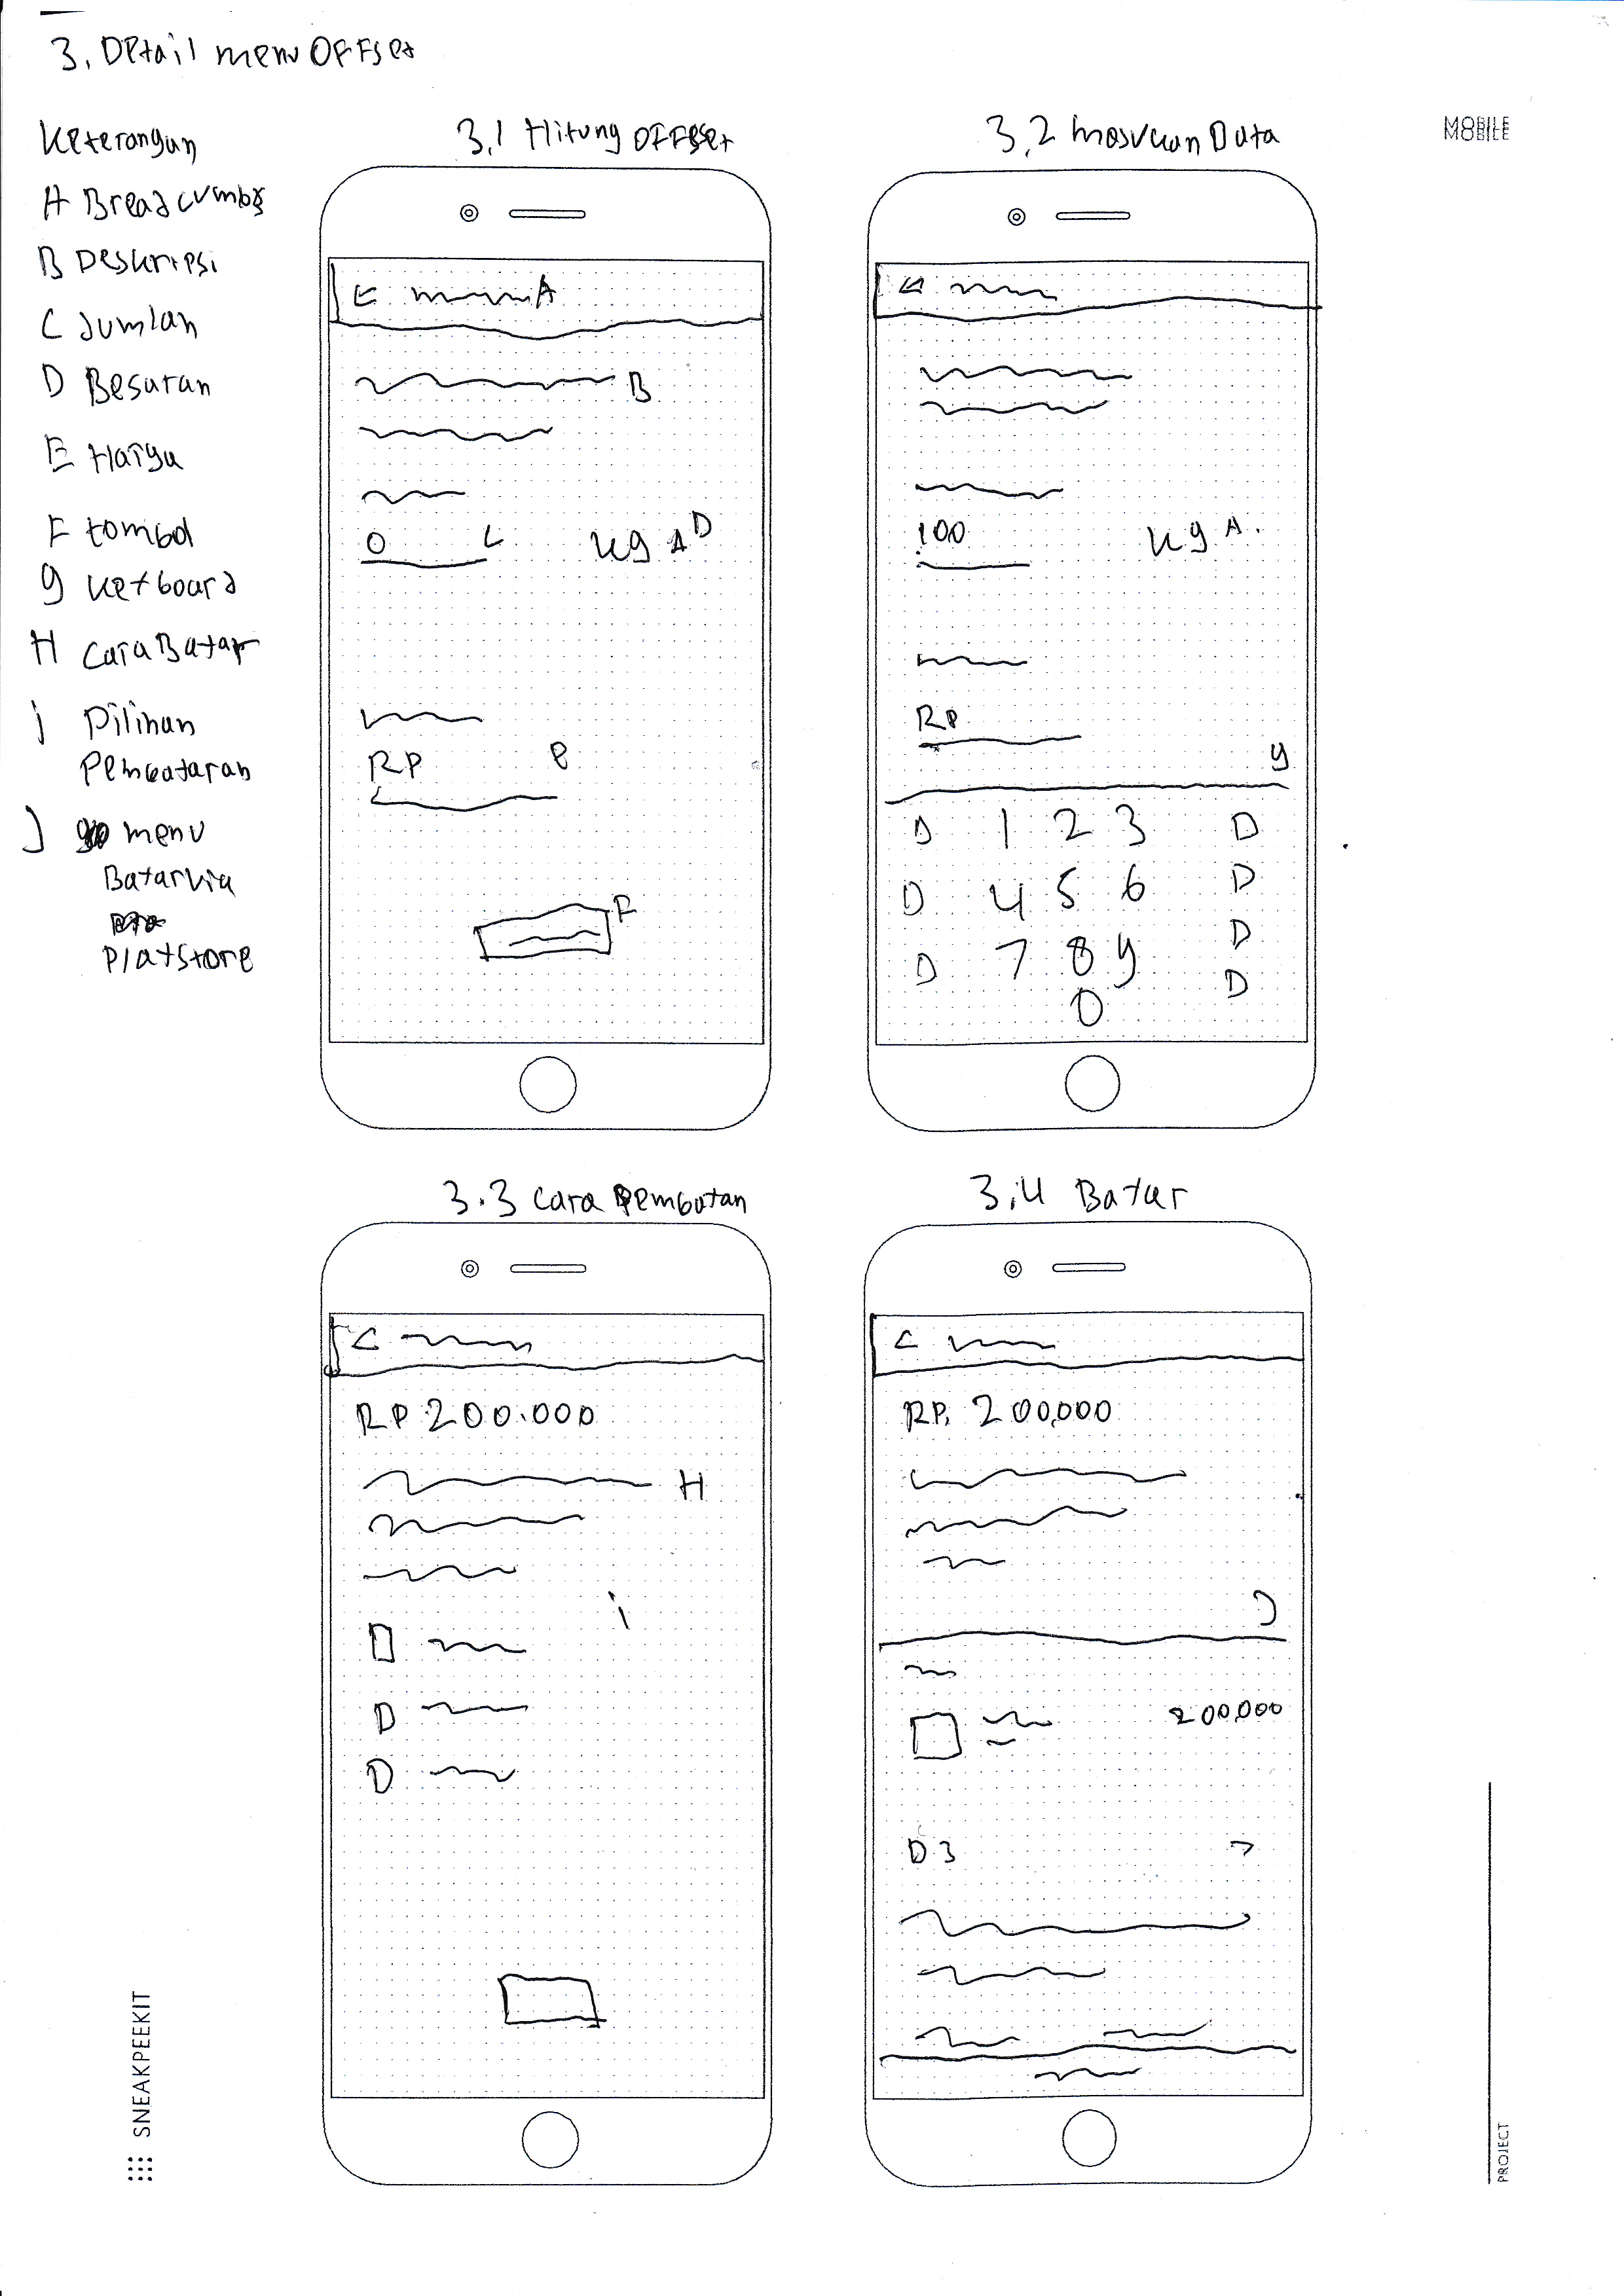 3. Detail menu OFFset
MOBILE
Keterangan
A Breadcumbs
B Deskripsi
C Jumlah
D Besaran
E Harga
F tombol
g keyboard
H Cara Bayar
i Pilihan
Pembayaran
J menu
Bayar via
Playstore
3.1 Hitung OFFset
A
B
0 C kg D
RP e
F
3.2 masukan Data
100 kg
RP
g
D 1 2 3 D
D 4 5 6 D
D 7 8 9 D
0 D
3.3 Cara Pembayaran
RP 200.000
H
i
D
D
3.4 Bayar
RP. 200.000
J
200.000
D 3 >
SNEAKPEEKIT
PROJECT